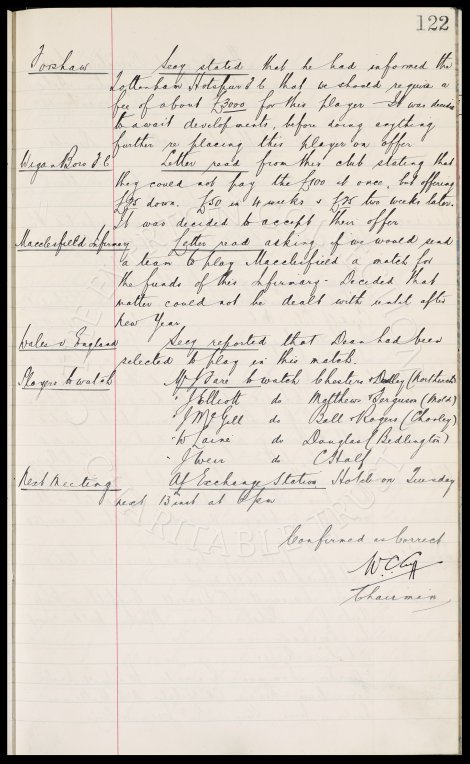 122
Forshaw Secy stated that he had informed the
Tottenham Hotspur F C that we should require a
fee of about £3000 for this player - It was decided
to await developments, before doing anything
further re placing this player on offer
Wigan Boro F C Letter read from this club stating that
they could not pay the £100 at once, but offering
£25 down. £50 in 4 weeks & £25 two weeks later.
It was decided to accept their offer
Macclesfield Infirmary Letter read asking if we would send
a team to play Macclesfield a match for
the funds of this Infirmary - Decided that
matter could not be dealt with until after
New Year
Wales v. England Secy reported that Dean had been
selected to play in this match
Players to watch Mr J Sare to watch Chesters & Dudley (Northwich)
" J Elliott do Matthews & Ferguson (Mold)
" J McGill do Ball & Rogers (Chorley)
" W Laine do Douglas (Bedlington)
" J Weir do C Half
Next Meeting At Exchange Station Hotel on Tuesday
next 13th inst at 6 pm
Confirmed as Correct
W. C. Cuff
Chairman
CHARITABLE TRUST